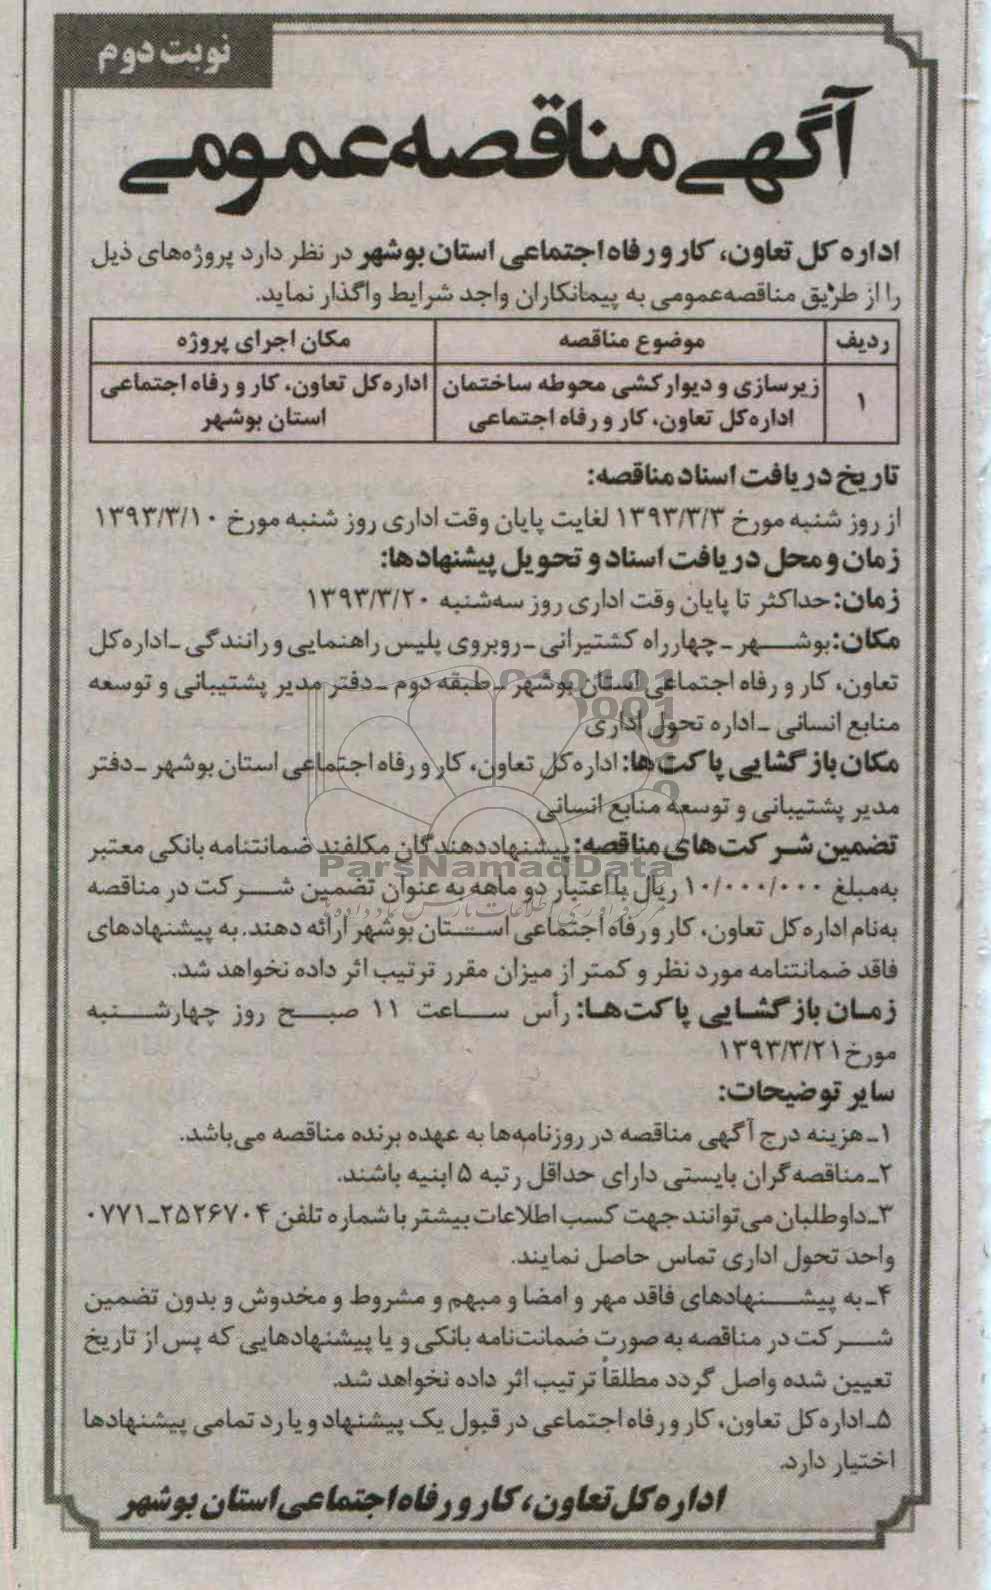 نوبت دوم
آگهی مناقصه عمومی
اداره کل تعاون، کار و رفاه اجتماعی استان بوشهر در نظر دارد پروژه‌های ذیل
را از طریق مناقصه‌عمومی به پیمانکاران واجد شرایط واگذار نماید.
ردیف موضوع مناقصه مکان اجرای پروژه
۱ زیرسازی و دیوارکشی محوطه ساختمان اداره‌کل تعاون، کار و رفاه اجتماعی
اداره‌کل تعاون، کار و رفاه اجتماعی استان بوشهر
تاریخ دریافت اسناد مناقصه:
از روز شنبه مورخ ۱۳۹۳/۳/۳ لغایت پایان وقت اداری روز شنبه مورخ ۱۳۹۳/۳/۱۰
زمان و محل دریافت اسناد و تحویل پیشنهادها:
زمان: حداکثر تا پایان وقت اداری روز سه‌شنبه ۱۳۹۳/۳/۲۰
مکان: بوشهر ـ چهارراه کشتیرانی ـ روبروی پلیس راهنمایی و رانندگی ـ اداره‌کل
تعاون، کار و رفاه اجتماعی استان بوشهر ـ طبقه دوم ـ دفتر مدیر پشتیبانی و توسعه
منابع انسانی ـ اداره تحول اداری
مکان بازگشایی پاکت‌ها: اداره‌کل تعاون، کار و رفاه اجتماعی استان بوشهر ـ دفتر
مدیر پشتیبانی و توسعه منابع انسانی
تضمین شرکت‌های مناقصه: پیشنهاددهندگان مکلفند ضمانتنامه بانکی معتبر
به‌مبلغ ۱۰/۰۰۰/۰۰۰ ریال با اعتبار دو ماهه به عنوان تضمین شرکت در مناقصه
به‌نام اداره کل تعاون، کار و رفاه اجتماعی استان بوشهر ارائه دهند. به پیشنهادهای
فاقد ضمانتنامه مورد نظر و کمتر از میزان مقرر ترتیب اثر داده نخواهد شد.
زمان بازگشایی پاکت‌ها: رأس ساعت ۱۱ صبح روز چهارشنبه
مورخ ۱۳۹۳/۳/۲۱
سایر توضیحات:
۱ـ هزینه درج آگهی مناقصه در روزنامه‌ها به عهده برنده مناقصه می‌باشد.
۲ـ مناقصه‌گران بایستی دارای حداقل رتبه ۵ ابنیه باشند.
۳ـ داوطلبان می‌توانند جهت کسب اطلاعات بیشتر با شماره تلفن ۲۵۲۶۷۰۴ـ۰۷۷۱
واحد تحول اداری تماس حاصل نمایند.
۴ـ به پیشنهادهای فاقد مهر و امضا و مبهم و مشروط و مخدوش و بدون تضمین
شرکت در مناقصه به صورت ضمانت‌نامه بانکی و یا پیشنهادهایی که پس از تاریخ
تعیین شده واصل گردد مطلقاً ترتیب اثر داده نخواهد شد.
۵ـ اداره کل تعاون، کار و رفاه اجتماعی در قبول یک پیشنهاد و یا رد تمامی پیشنهادها
اختیار دارد.
اداره کل تعاون، کار و رفاه اجتماعی استان بوشهر
ParsNamadData